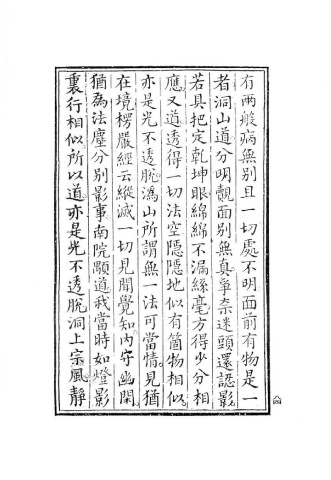 有兩般病無別且一切處不明面前有物是一
者洞山道分明覿面別無真爭柰迷頭還認影
若具把定乾坤眼綿綿不漏絲毫方得少分相
應又道透得一切法空隱隱地似有箇物相似
亦是光不透脫溈山所謂無一法可當情見猶
在境楞嚴經云縱滅一切見聞覺知內守幽閑
猶為法塵分別影事南院顒道我當時如燈影
裏行相似所以道亦是光不透脫洞上宗風靜